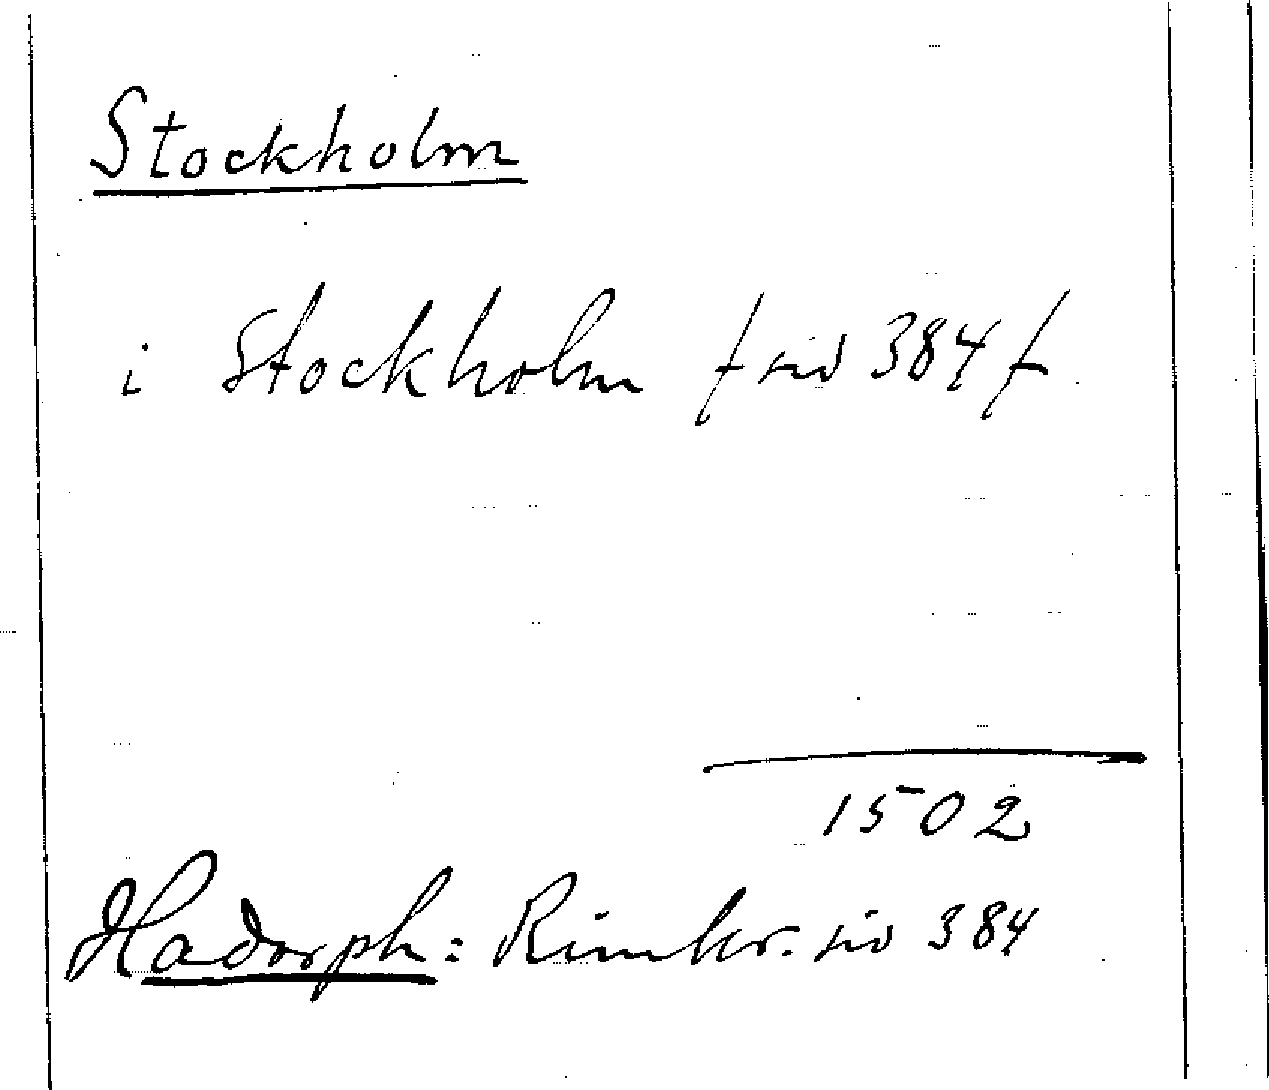 Stockholm
i Stockholm f sid 384 f.
1502
Hadorph: Rimkr. sid 384